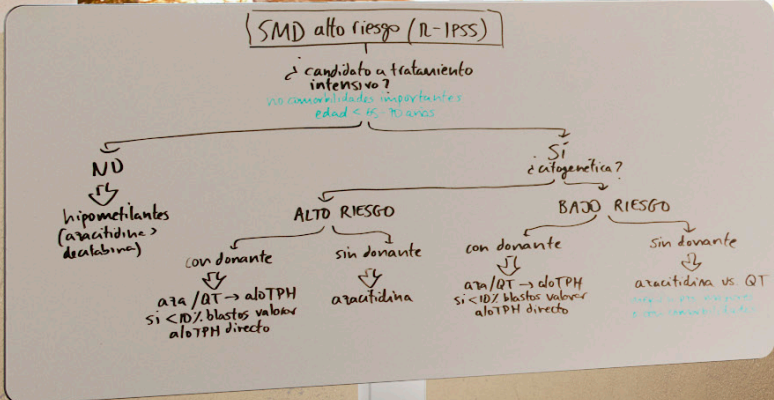 SMD alto riesgo (R-IPSS)
¿candidato a tratamiento
intensivo?
no comorbilidades importantes
edad < 65-70 años
NO
hipometilantes
(azacitidina >
decitabina)
SÍ
¿citogenética?
ALTO RIESGO
con donante
aza/QT → aloTPH
si <10% blastos valorar
aloTPH directo
sin donante
azacitidina
BAJO RIESGO
con donante
aza/QT → aloTPH
si <10% blastos valorar
aloTPH directo
sin donante
azacitidina vs. QT